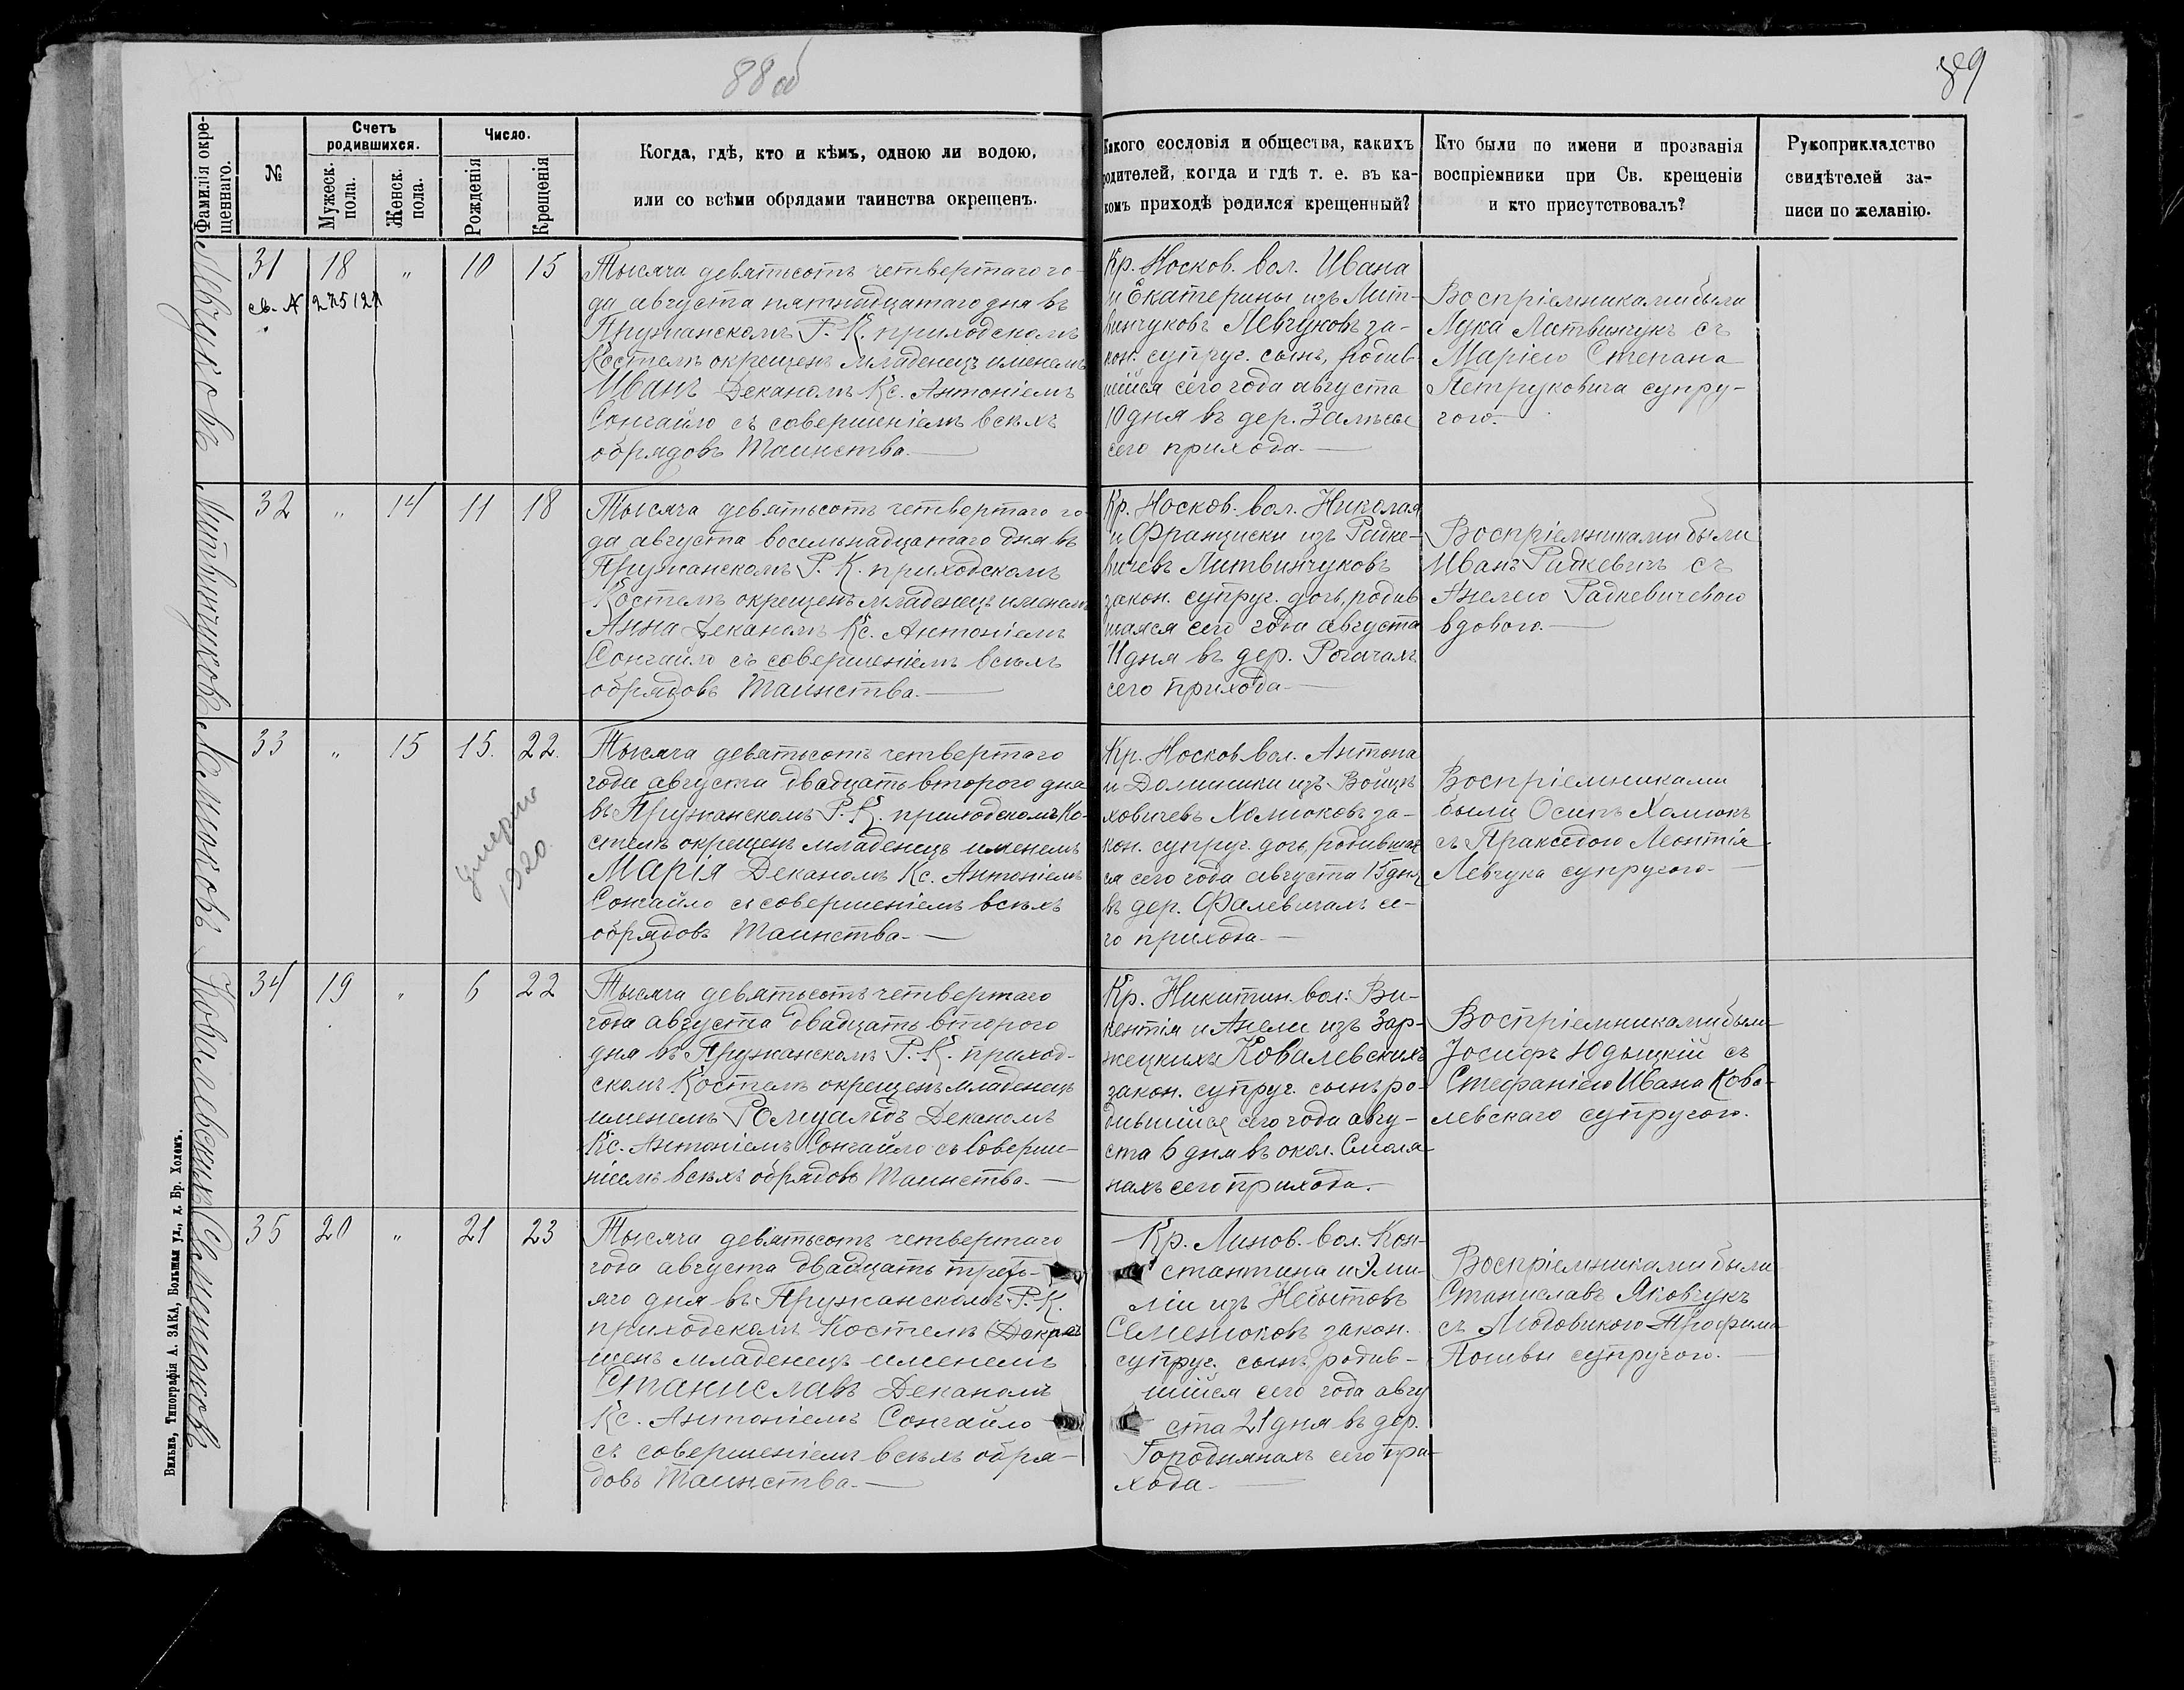 88 об
889
Фамилія окре-
щеннаго.
№
Счетъ
родившихся.
Мужеск.
пола.
Женск.
пола.
Число.
Рожденія
Крещенія
Когда, гдѣ, кто и кѣмъ, одною ли водою,
или со всѣми обрядами таинства окрещенъ.
Какого сословія и общества, какихъ
родителей, когда и гдѣ т. е. въ ка-
комъ приходѣ родился крещенный?
Кто были по имени и прозванія
воспріемники при Св. крещеніи
и кто присутствовалъ?
Рукоприкладство
свидѣтелей за-
писи по желанію.
Левчуковъ
31 18 „ 10 15
св. №
Тысяча девятьсотъ четвертаго го-
да августа пятнадцатаго дня въ
Пружанскомъ Р. К. приходскомъ
Костелѣ окрещенъ младенецъ именемъ
Иванъ Деканомъ Кс. Антоніемъ
Сонгайло съ совершеніемъ всѣхъ
обрядовъ Таинства.
Кр. Носков. вол. Ивана
и Екатерины изъ Лит-
винчуковъ Левчуковъ за-
кон. супруг. сынъ, родив-
шійся сего года августа
10 дня въ дер. Залѣсье
сего прихода.
Воспріемниками были
Лука Литвинчукъ съ
Маріею Степана
Петруковича супру-
гою.
Литвинчуковъ
32 „ 14 11 18
Тысяча девятьсотъ четвертаго го-
да августа восемьнадцатаго дня въ
Пружанскомъ Р. К. приходскомъ
Костелѣ окрещенъ младенецъ именемъ
Анна Деканомъ Кс. Антоніемъ
Сонгайло съ совершеніемъ всѣхъ
обрядовъ Таинства.
Кр. Носков. вол. Николая
и Франциски изъ Радке-
вичевъ Литвинчуковъ
закон. супруг. дочь, родив
шаяся сего года августа
11 дня въ дер. Рогачахъ
сего прихода
Воспріемниками были
Иванъ Радкевичъ съ
Анелею Радкевичевою
вдовою.
Хомюковъ
33 „ 15 15. 22.
Умерла
1920.
Тысяча девятьсотъ четвертаго
года августа двадцать второго дня
въ Пружанскомъ Р. К. приходскомъ Ко-
стелѣ окрещенъ младенецъ именемъ
Марія Деканомъ Кс. Антоніемъ
Сонгайло съ совершеніемъ всѣхъ
обрядовъ Таинства.
Кр. Носков. вол. Антона
и Доминики изъ Войцѣ
ховичевъ Хомюковъ за-
кон. супруг. дочь, родивша
ся сего года августа 15 дня
въ дер. Фалевичахъ се-
го прихода.
Воспріемниками
были Осипъ Хомюкъ
съ Пракседою Леонтія
Левчука супругою.
Ковалевскихъ
34 19 „ 6 22
Тысяча девятьсотъ четвертаго
года августа двадцать второго
дня въ Пружанскомъ Р. К. приход-
скомъ Костелѣ окрещенъ младенецъ
именемъ Ромуальдъ Деканомъ
Кс. Антоніемъ Сонгайло съ соверше-
ніемъ всѣхъ обрядовъ Таинства.
Кр. Никитин. вол. Ви-
кентія и Анели изъ Зар-
жецкихъ Ковалевскихъ
закон. супруг. сынъ ро-
дившійся сего года авгу-
ста 6 дня въ окол. Смоля
нахъ сего прихода.
Воспріемниками были
Іосифъ Юдыцкій съ
Стефаніею Ивана Кова-
левскаго супругою.
Семенюковъ
35 20 „ 21 23
Тысяча девятьсотъ четвертаго
года августа двадцать треть-
яго дня въ Пружанскомъ Р. К.
приходскомъ Костелѣ окре
щенъ младенецъ именемъ
Станиславъ Деканомъ
Кс. Антоніемъ Сонгайло
съ совершеніемъ всѣхъ обря-
довъ Таинства.
Кр. Линов. вол. Кон-
стантина и Эми-
ліи изъ Небытовъ
Семенюковъ закон.
супруг. сынъ, родив-
шійся сего года авгу
ста 21 дня въ дер.
Городнянахъ сего при-
хода.
Воспріемниками были
Станиславъ Яковчукъ
съ Людовикою Трофима
Пошвы супругою.
Вильна, Типографія А. ЗАКА, Большая ул., д. Бр. Холемъ.